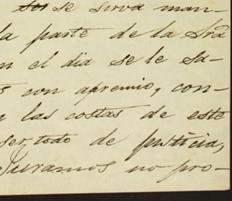 se sirva man-
la parte de la Sra
n el dia se le sa-
s con apremio, con-
a las costas de este
ser, todo de justicia,
Juramos no pro-